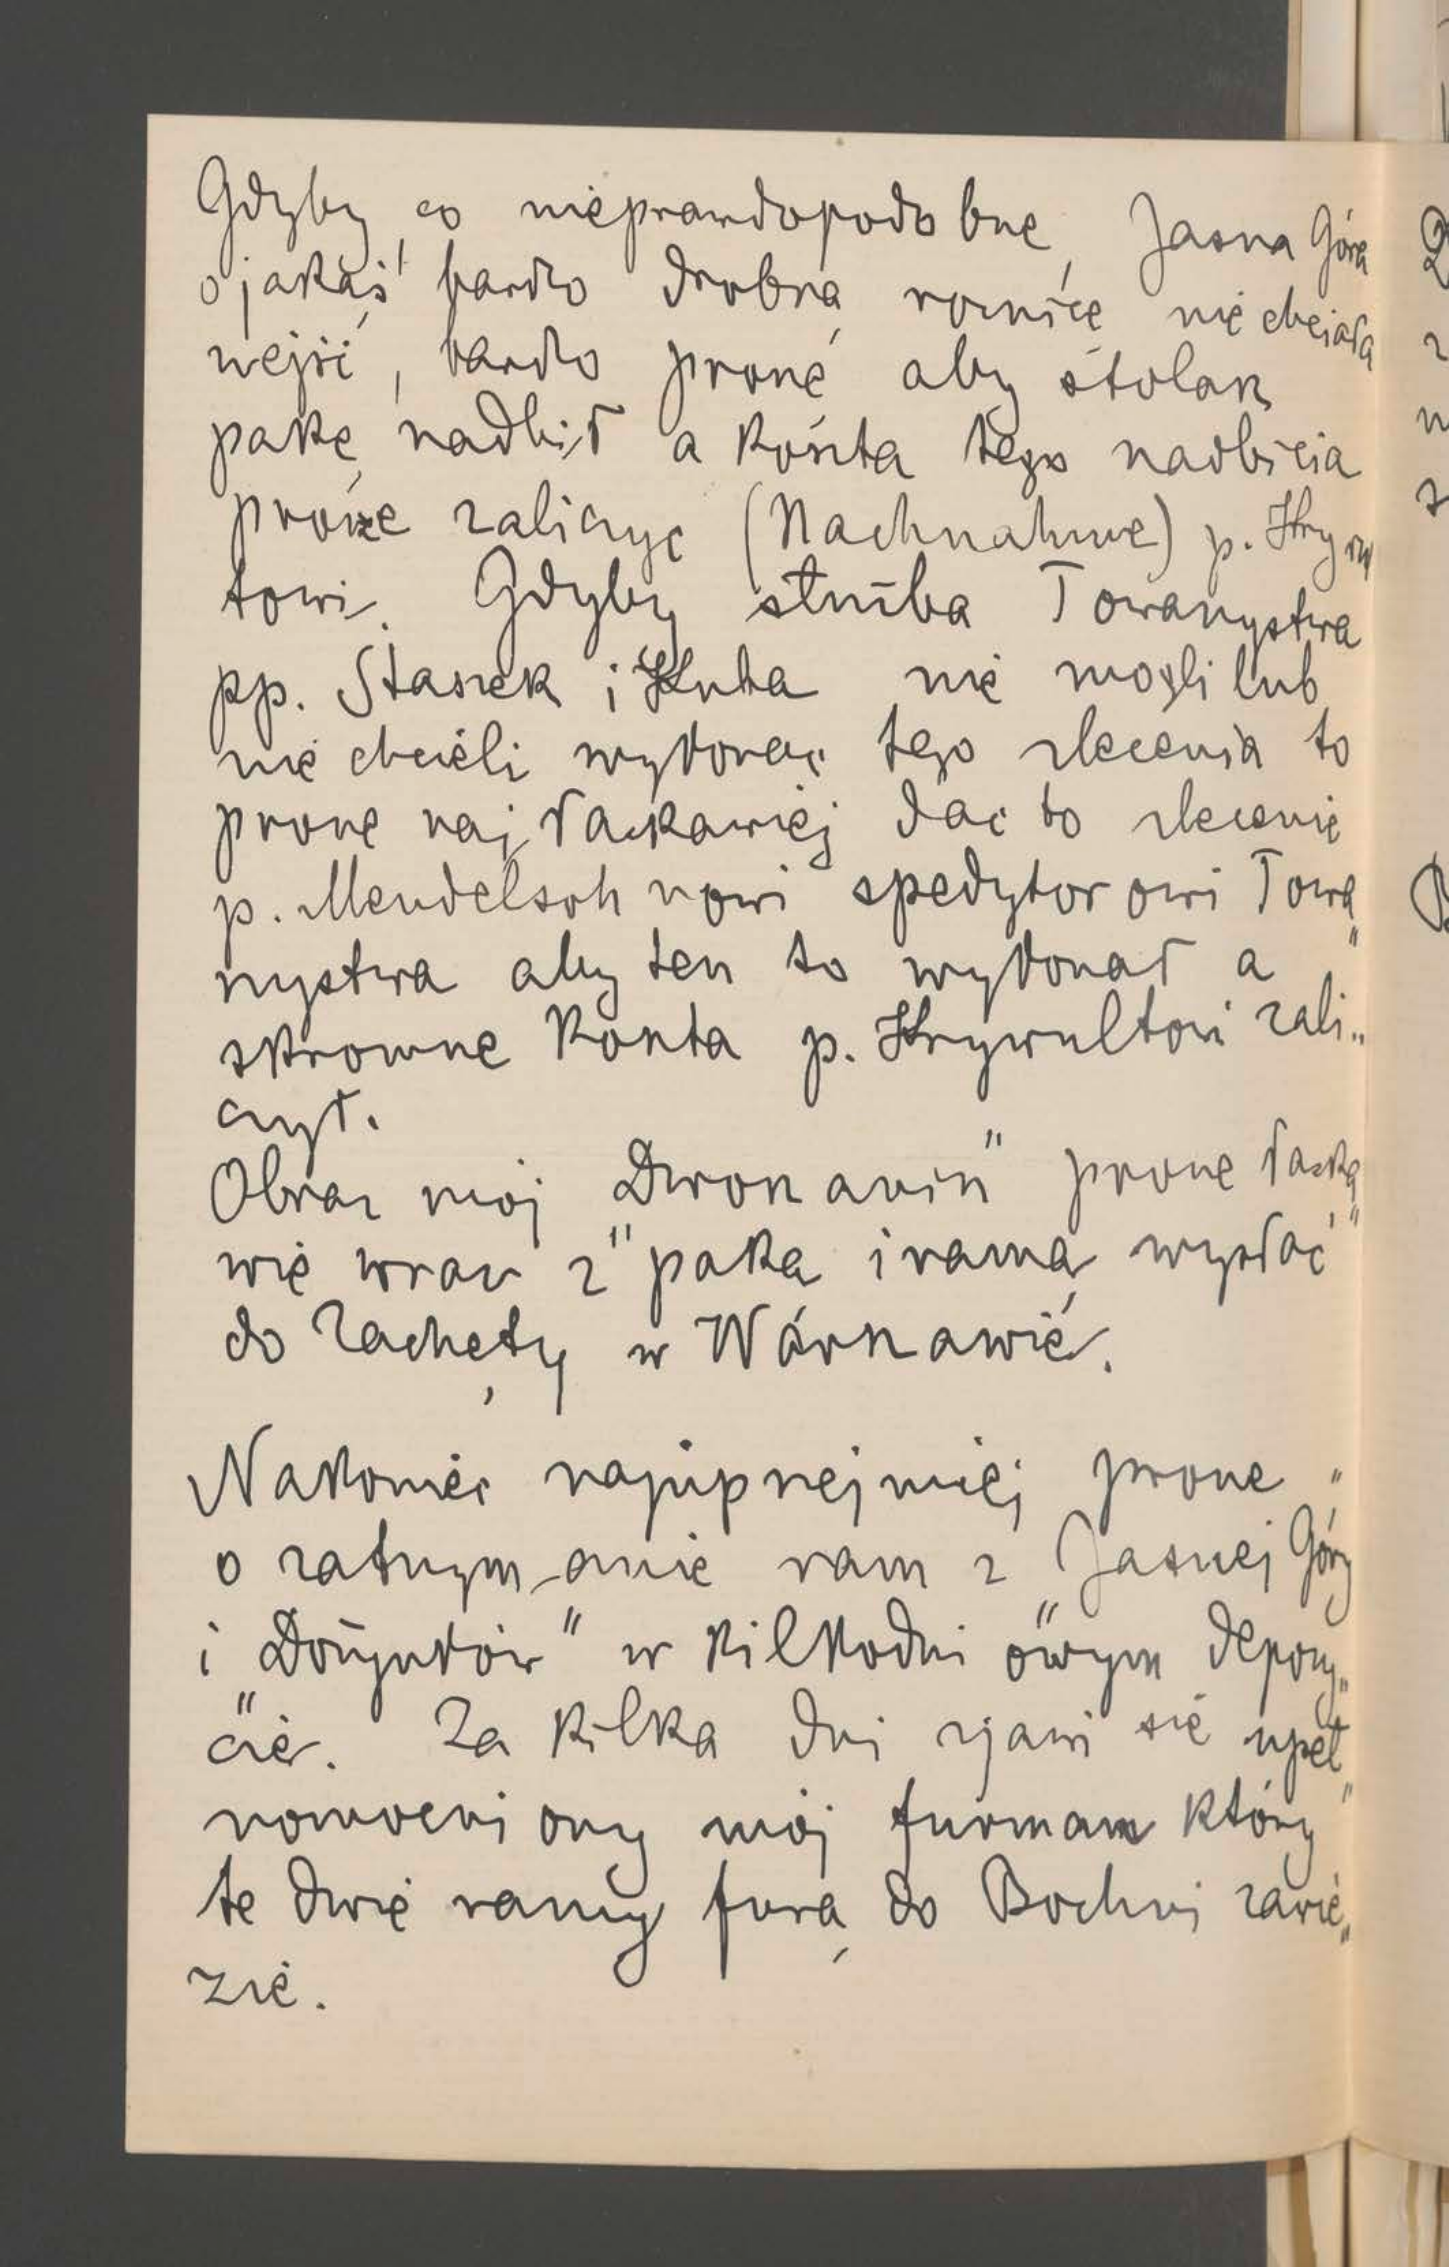 Gdyby, co nieprawdopodobne, Jasna Góra
o jakąś bardzo drobną różnicę nie chciała
wejść, bardzo proszę aby stolarz
pakę nadbił a koszta tego nadbicia
proszę zaliczyć (Nachnahme) p. Krywul
towi. Gdyby służba Towarzystwa
pp. Staszek i Kuba nie mogli lub
nie chcieli wykonać tego zlecenia to
proszę najłaskawiej dać to zlecenie
p. Mendelsohnowi spedytorowi Towa„
rzystwa aby ten to wykonał a
skromne koszta p. Krywultowi zali„
czył.
Obraz mój "Dworzanin" proszę łaska„
wie wraz z paką i ramą wysłać
do Zachęty w Warszawie.
Nakoniec najuprzejmiej proszę „
o zatrzymanie ram z "Jasnej Góry
i Dożynków" w kilkodniówym depozy„
cie. Za kilka dni zjawi się upeł„
nomocniony mój furman który
te dwie ramy furą do Bochni zawie„
zie.